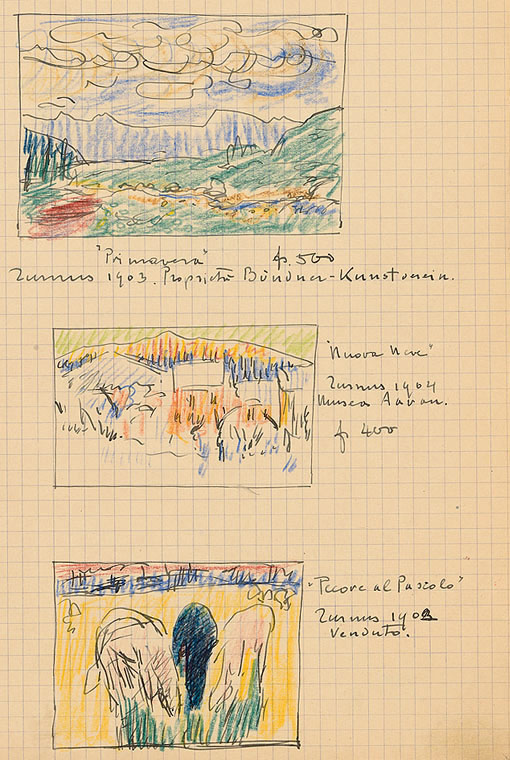 "Primavera" fr. 500
Turnus 1903. Proprietà Bündner-Kunstverein.
"Nuova Neve"
Turnus 1904
Museo Aarau.
fr 400
"Pecore al Pascolo"
Turnus
Venduto.